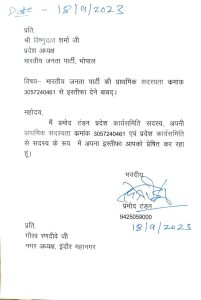 Date - 18/9/2023
प्रति,
श्री विष्णुदत्त शर्मा जी
प्रदेश अध्यक्ष
भारतीय जनता पार्टी, भोपाल
विषय– भारतीय जनता पार्टी की प्राथमिक सदस्यता कमांक
3057240461 से इस्तीफा देने बाबद्।
महोदय,
मैं प्रमोद टंडन प्रदेश कार्यसमिति सदस्य, अपनी
प्राथमिक सदस्यता कमांक 3057240461 एवं प्रदेश कार्यसमिति
से सदस्य के रूप में अपना इस्तीफा आपको प्रेषित कर रहा
हूं।
भवदीय
प्रमोद टंडन
9425059000
18/9/2023
प्रति,
गौरव रणदीवे जी
नगर अध्यक्ष, इंदौर महानगर